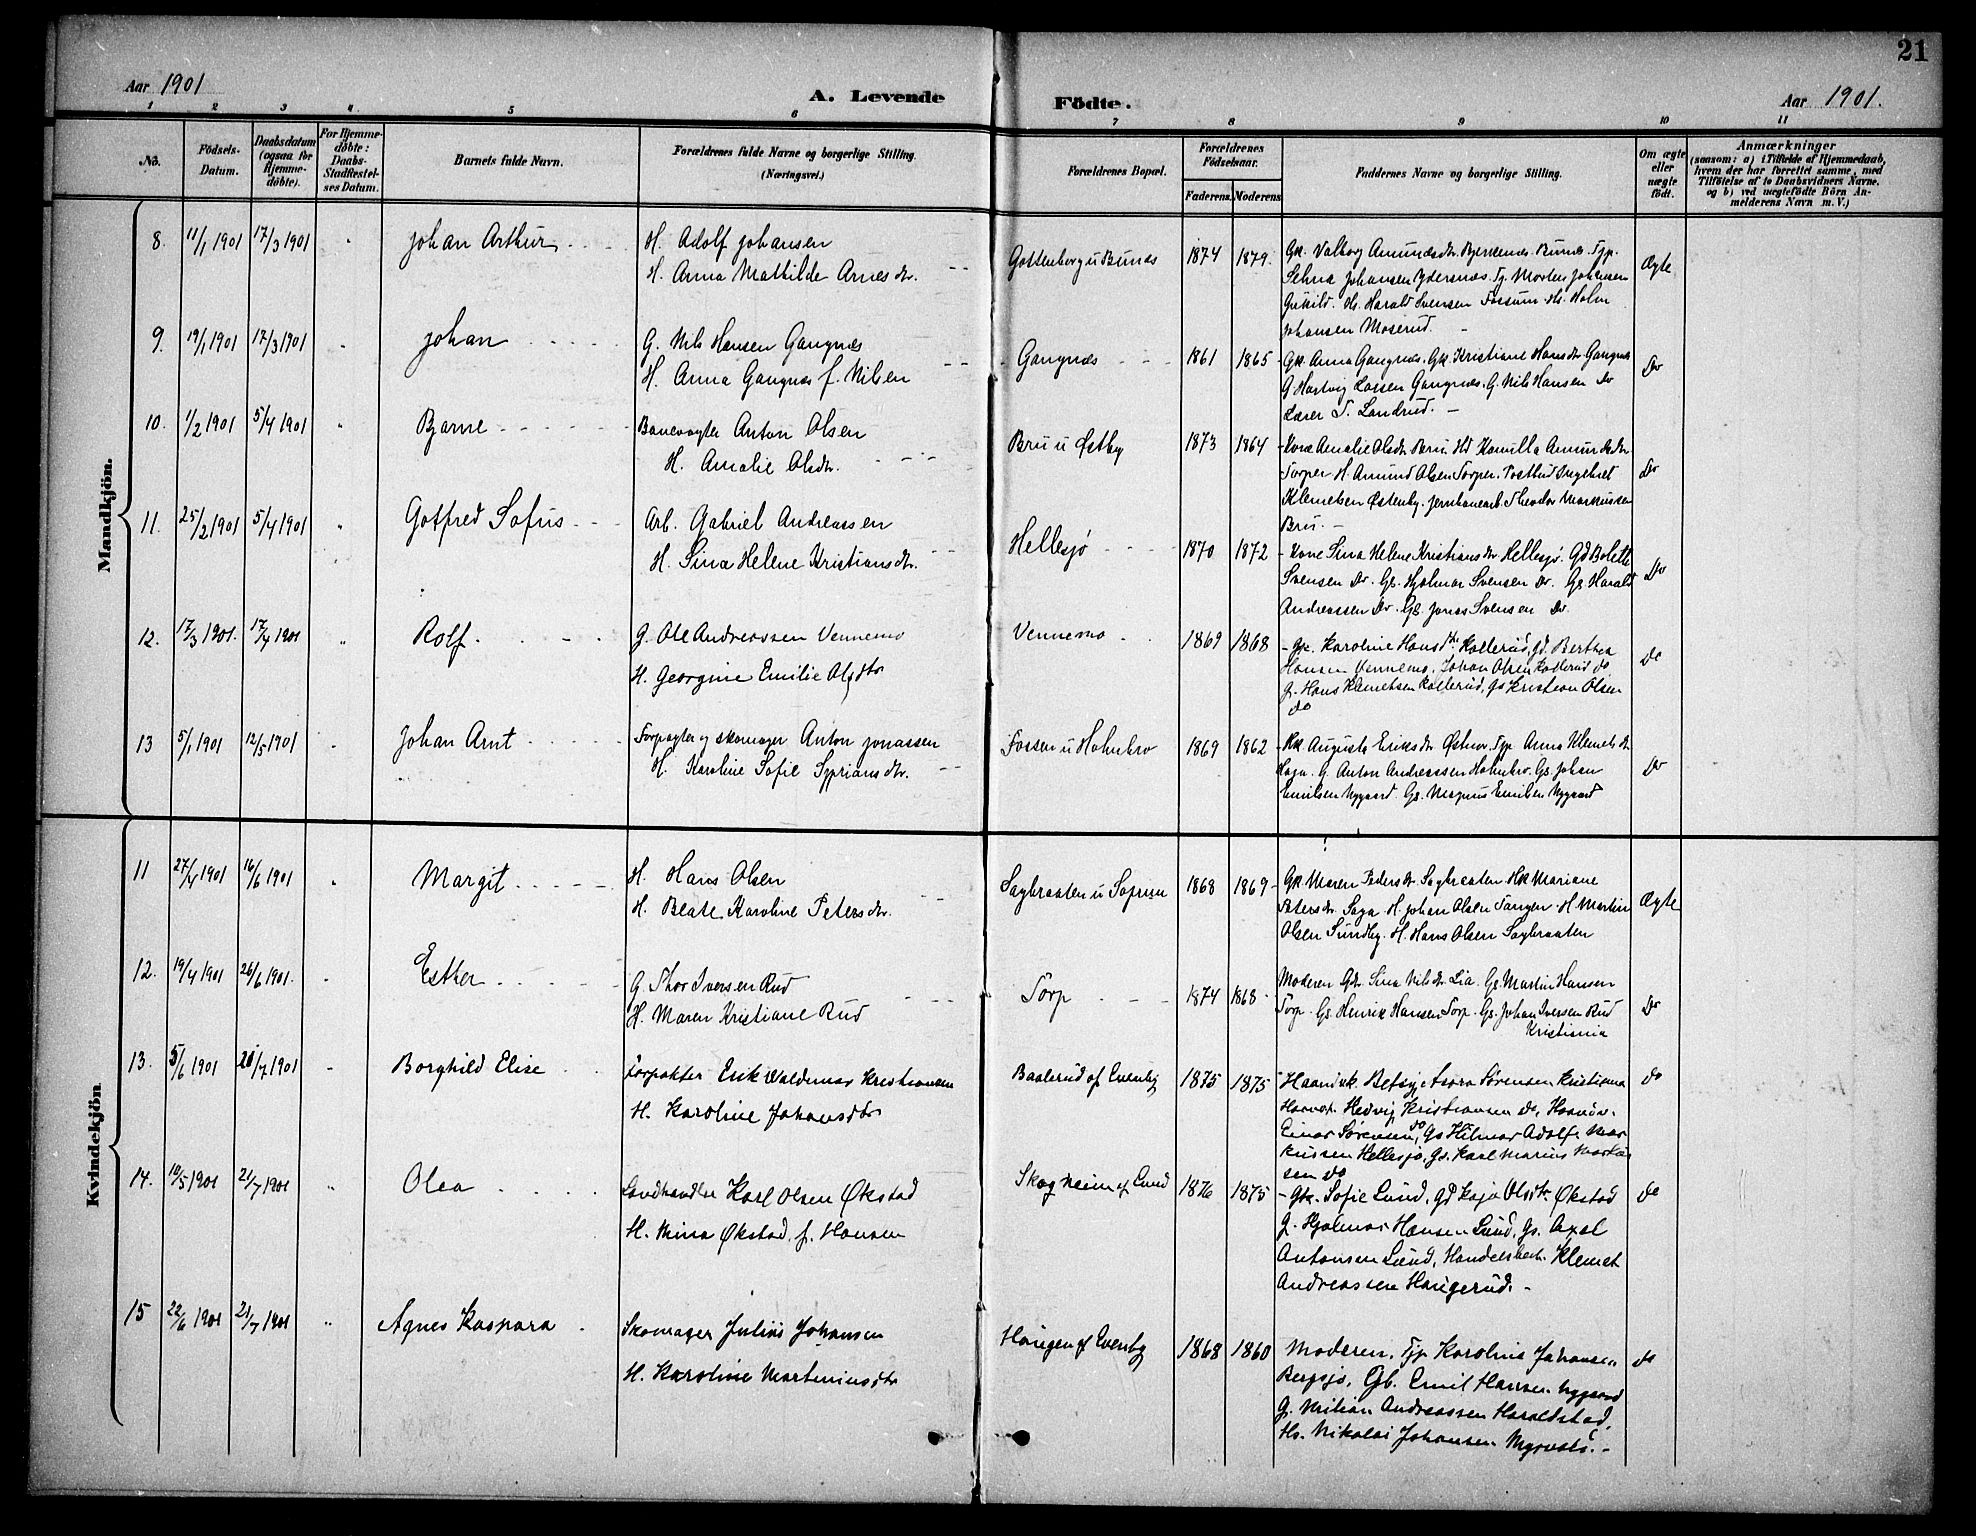 21
Aar 1901
A. Levende Födte.
Aar 1901.
1 2 3 4 5 6 7 8 9 10 11
No.
Födsels-
Datum.
Daabsdatum
(ogsaa for
Hjemme-
döbte).
For Hjemme-
döbte:
Daabs-
Stadfæstel-
ses Datum.
Barnets fulde Navn.
Forældrenes fulde Navne og borgerlige Stilling.
(Næringsvei.)
Forældrenes Bopæl.
Forældrenes
Födselsaar.
Faderens. Moderens.
Faddernes Navne og borgerlige Stilling.
Om ægte
eller
uægte
födt.
Anmærkninger
(saasom: a) i Tilfælde af Hjemmedaab,
hvem der har forrettet samme, med
Tilföielse af to Daabsvidners Navne.
og b) ved uægtefödte Börn An-
melderens Navn m. V.)
Mandkjön.
8. 11/1 1901 17/3 1901 " Johan Arthur
H. Adolf Johansen
H. Anna Mathilde Arnesdtr.
Gottenborg u Bunæs 1874 1879.
Gk. Valborg Amundsdtr. Bjerkenes Bunæs. Tjp.
Selma Johansen Ydersnes. Tj. Morten Johansen
Hs. Harald Svensen Fossum. Hs. Holm
Johansen Moserud.
Ægte
9. 19/1 1901 17/3 1901 " Johan
G. Nils Hansen Gangnæs
H. Anna Gangnæs f. Nilsen
Gangnæs 1861 1865
Gk. Anna Gangnæs. Gk. Kristiane Hansdtr. Gangnæs
G. Hartvig Larsen Gangnæs. G. Nils Hansen Do
Lærer T. Landrud.
Do
10. 1/2 1901 5/4 1901 " Bjarne
Banevogter Anton Olsen
H. Amalie Olsdtr.
Bru u Østby 1873 1864
Kone Amalie Olsdtr Bru. Hd Kamilla Amundsdtr
Torper. H. Amund Olsen Torper. Postbud Ingebret
Klemetsen Østenby. Jernbanearb. Theodor Markussen
Bru.
Do
11. 25/2 1901 5/4 1901 " Gotfred Sofus
Arb. Gabriel Andreassen
H. Sina Helene Kristiansdtr.
Hellesjø 1870 1872
Kone Sina Helene Kristiansdtr Hellesjø. Gd Bolette
Svensen Do. Gs. Hjalmar Svensen Do. Gs. Harald
Andreassen Do. Gs. Jonas Svensen Do.
Do
12. 17/3 1901. 17/4 1901 " Rolf.
G. Ole Andreassen Vennemo
H. Georgine Emilie Olsdtr
Vennemo 1869 1868
Gk. Karoline Hansdtr. Kollerud, Gd. Berthea
Hansen Vennemo. Johan Olsen Kollerud do
G. Hans Klemetsen Kollerud, Gs Kristian Olsen
do
do
13 5/1 1901 12/5 1901 Johan Arnt
Forpagter og skomager Anton Jonassen
H. Karoline Sofie Syprians dtr.
Fossen u Holmbro 1869 1862
Augusta Eriksdtr Østnor. Tjp. Anna Klemetsdtr
Haga. G. Anton Andreassen Holmbro. Gs. Johan
Emilsen Nygaard. Gs. Magnus Emilsen Nygaard
Do
Kvindekjön
11 27/4 1901 16/6 1901 Margit
H. Hans Olsen
H. Beate Karoline Petersdtr.
Sagbraaten u 1868 1869
Gk. Maren Pedersdtr Sagbraaten. Hk Mariane
Petersdtr. Saga. H. Johan Olsen Tangen. H. Martin
Olsen Sundby. H. Hans Olsen Sagbraaten
Ægte
12. 19/4 1901 26/6 1901. Esther
G. Thor Iversen Rud
H. Maren Kristiane Rud
Torp 1874 1868
Moderen Gdr. Sina Nilsdtr. Lia. Gs. Martin Hansen
Torp. Gs Henrik Hansen Torp. Gs. Johan Iversen Rud
Kristiania
Do
13. 5/6 1901 20/7 1901 Borghild Elise
Forpakter Erik Valdemar Kristiansen
H. Karoline Johansdtr
Baalerud af Evenby 1875 1875
Haandvk. Betsy Asora Sørensen Kristiania
Hedvig Kristiansen do, Haandv.
Einar Sørensen do, Gs Hilmar Adolf Mar
kussen Hellesjø, Gs. Karl Marius Markus
sen do
do
14. 10/5 1901 21/7 1901 " Olea
Landhandler Karl Olsen Økstad
H. Mina Økstad f. Hansen
Skogheim af Lund 1876 1875
Gk. Sofie Lund, Gd Kaja Olsdtr. Økstad
G. Hjalmar Hansen Lund, Gs. Axel
Antonsen Lund, Handelsbest. Klemet
Andreassen Haugerud.
do
15 22/6 1901 21/7 1901 " Agnes Kaspara
Skomager Julius Johansen
H. Karoline Martiniusdtr
Haugen af Evenby 1868 1860
Moderen, Tjp Karoline Johansen
Bergsjø, Gb. Emil Hansen Nygaard
G. Milian Andreassen Haraldstad,
Hs. Nikolai Johansen
do